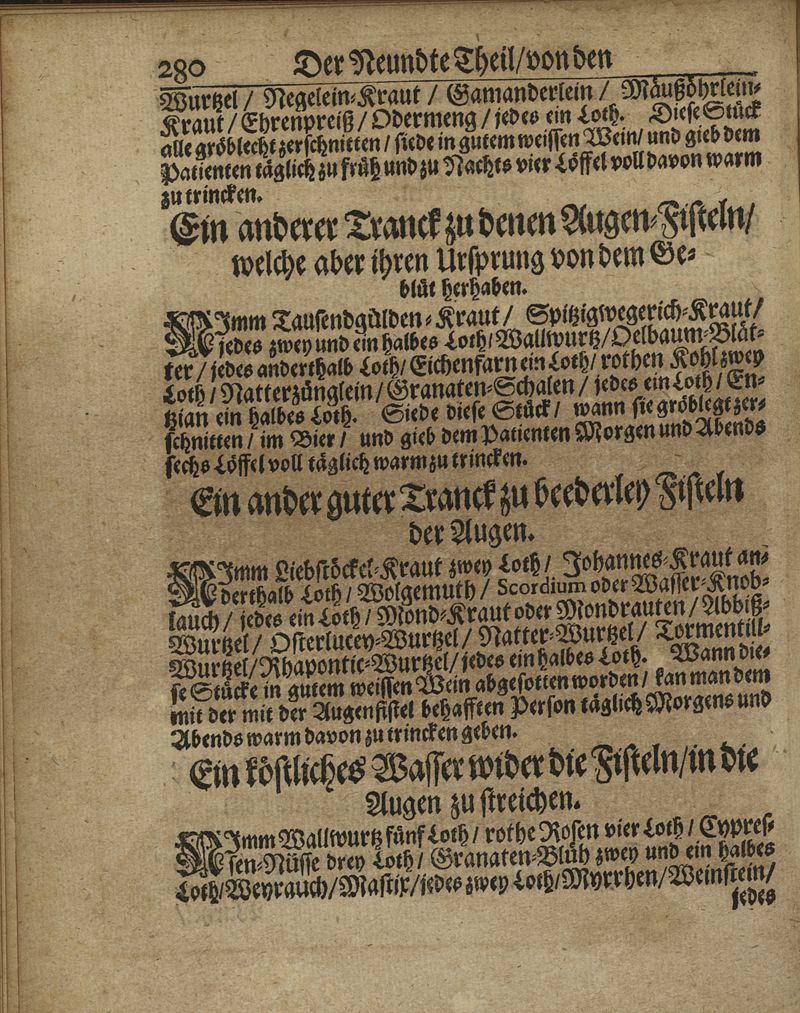 280 Der Neundte Theil/von den
Wurtzel / Negelein-Kraut / Gamanderlein / Mäußöhrlein-
Kraut / Ehrenpreiß / Odermeng / jedes ein Loth. Diese Stück
alle gröblecht zerschnitten / siede in gutem weissen Wein / und gieb dem
Patienten täglich zu früh und zu Nachts vier Löffel voll davon warm
zu trincken.
Ein anderer Tranck zu denen Augen-Fisteln/
welche aber ihren Ursprung von dem Ge-
blüt herhaben.
NImm Tausendgülden-Kraut / Spitzigwegerich-Kraut/
jedes zwey und ein halbes Loth / Wallwurtz / Oelbaum-Blät-
ter / jedes anderthalb Loth / Eichenfarn ein Loth / rothen Kohl zwey
Loth / Natterzünglein / Granaten-Schalen / jedes ein Loth / En-
tzian ein halbes Loth. Siede diese Stück / wann sie gröblegt zer-
schnitten / im Bier / und gieb dem Patienten Morgen und Abends
sechs Löffel voll täglich warm zu trincken.
Ein ander guter Tranck zu beederley Fisteln
der Augen.
NImm Liebstöckel-Kraut zwey Loth / Johannes-Kraut an-
derthalb Loth / Wolgemuth / Scordium oder Wasser-Knob-
lauch / jedes ein Loth / Mond-Kraut oder Mondrauten / Abbiß-
Wurtzel / Osterlucey-Wurtzel / Natter-Wurtzel / Tormentill-
Wurtzel / Rhapontic-Wurtzel / jedes ein halbes Loth. Wann die-
se Stücke in gutem weissen Wein abgesotten worden / kan man dem
mit der mit der Augenfistel behafften Person täglich Morgens und
Abends warm davon zu trincken geben.
Ein köstliches Wasser wider die Fisteln/in die
Augen zu streichen.
NImm Wallwurtz fünf Loth / rothe Rosen vier Loth / Cypres-
sen-Nüsse drey Loth / Granaten-Blüh zwey und ein halbes
Loth / Weyrauch / Mastix / jedes zwey Loth / Myrrhen / Weinstein /
jedes